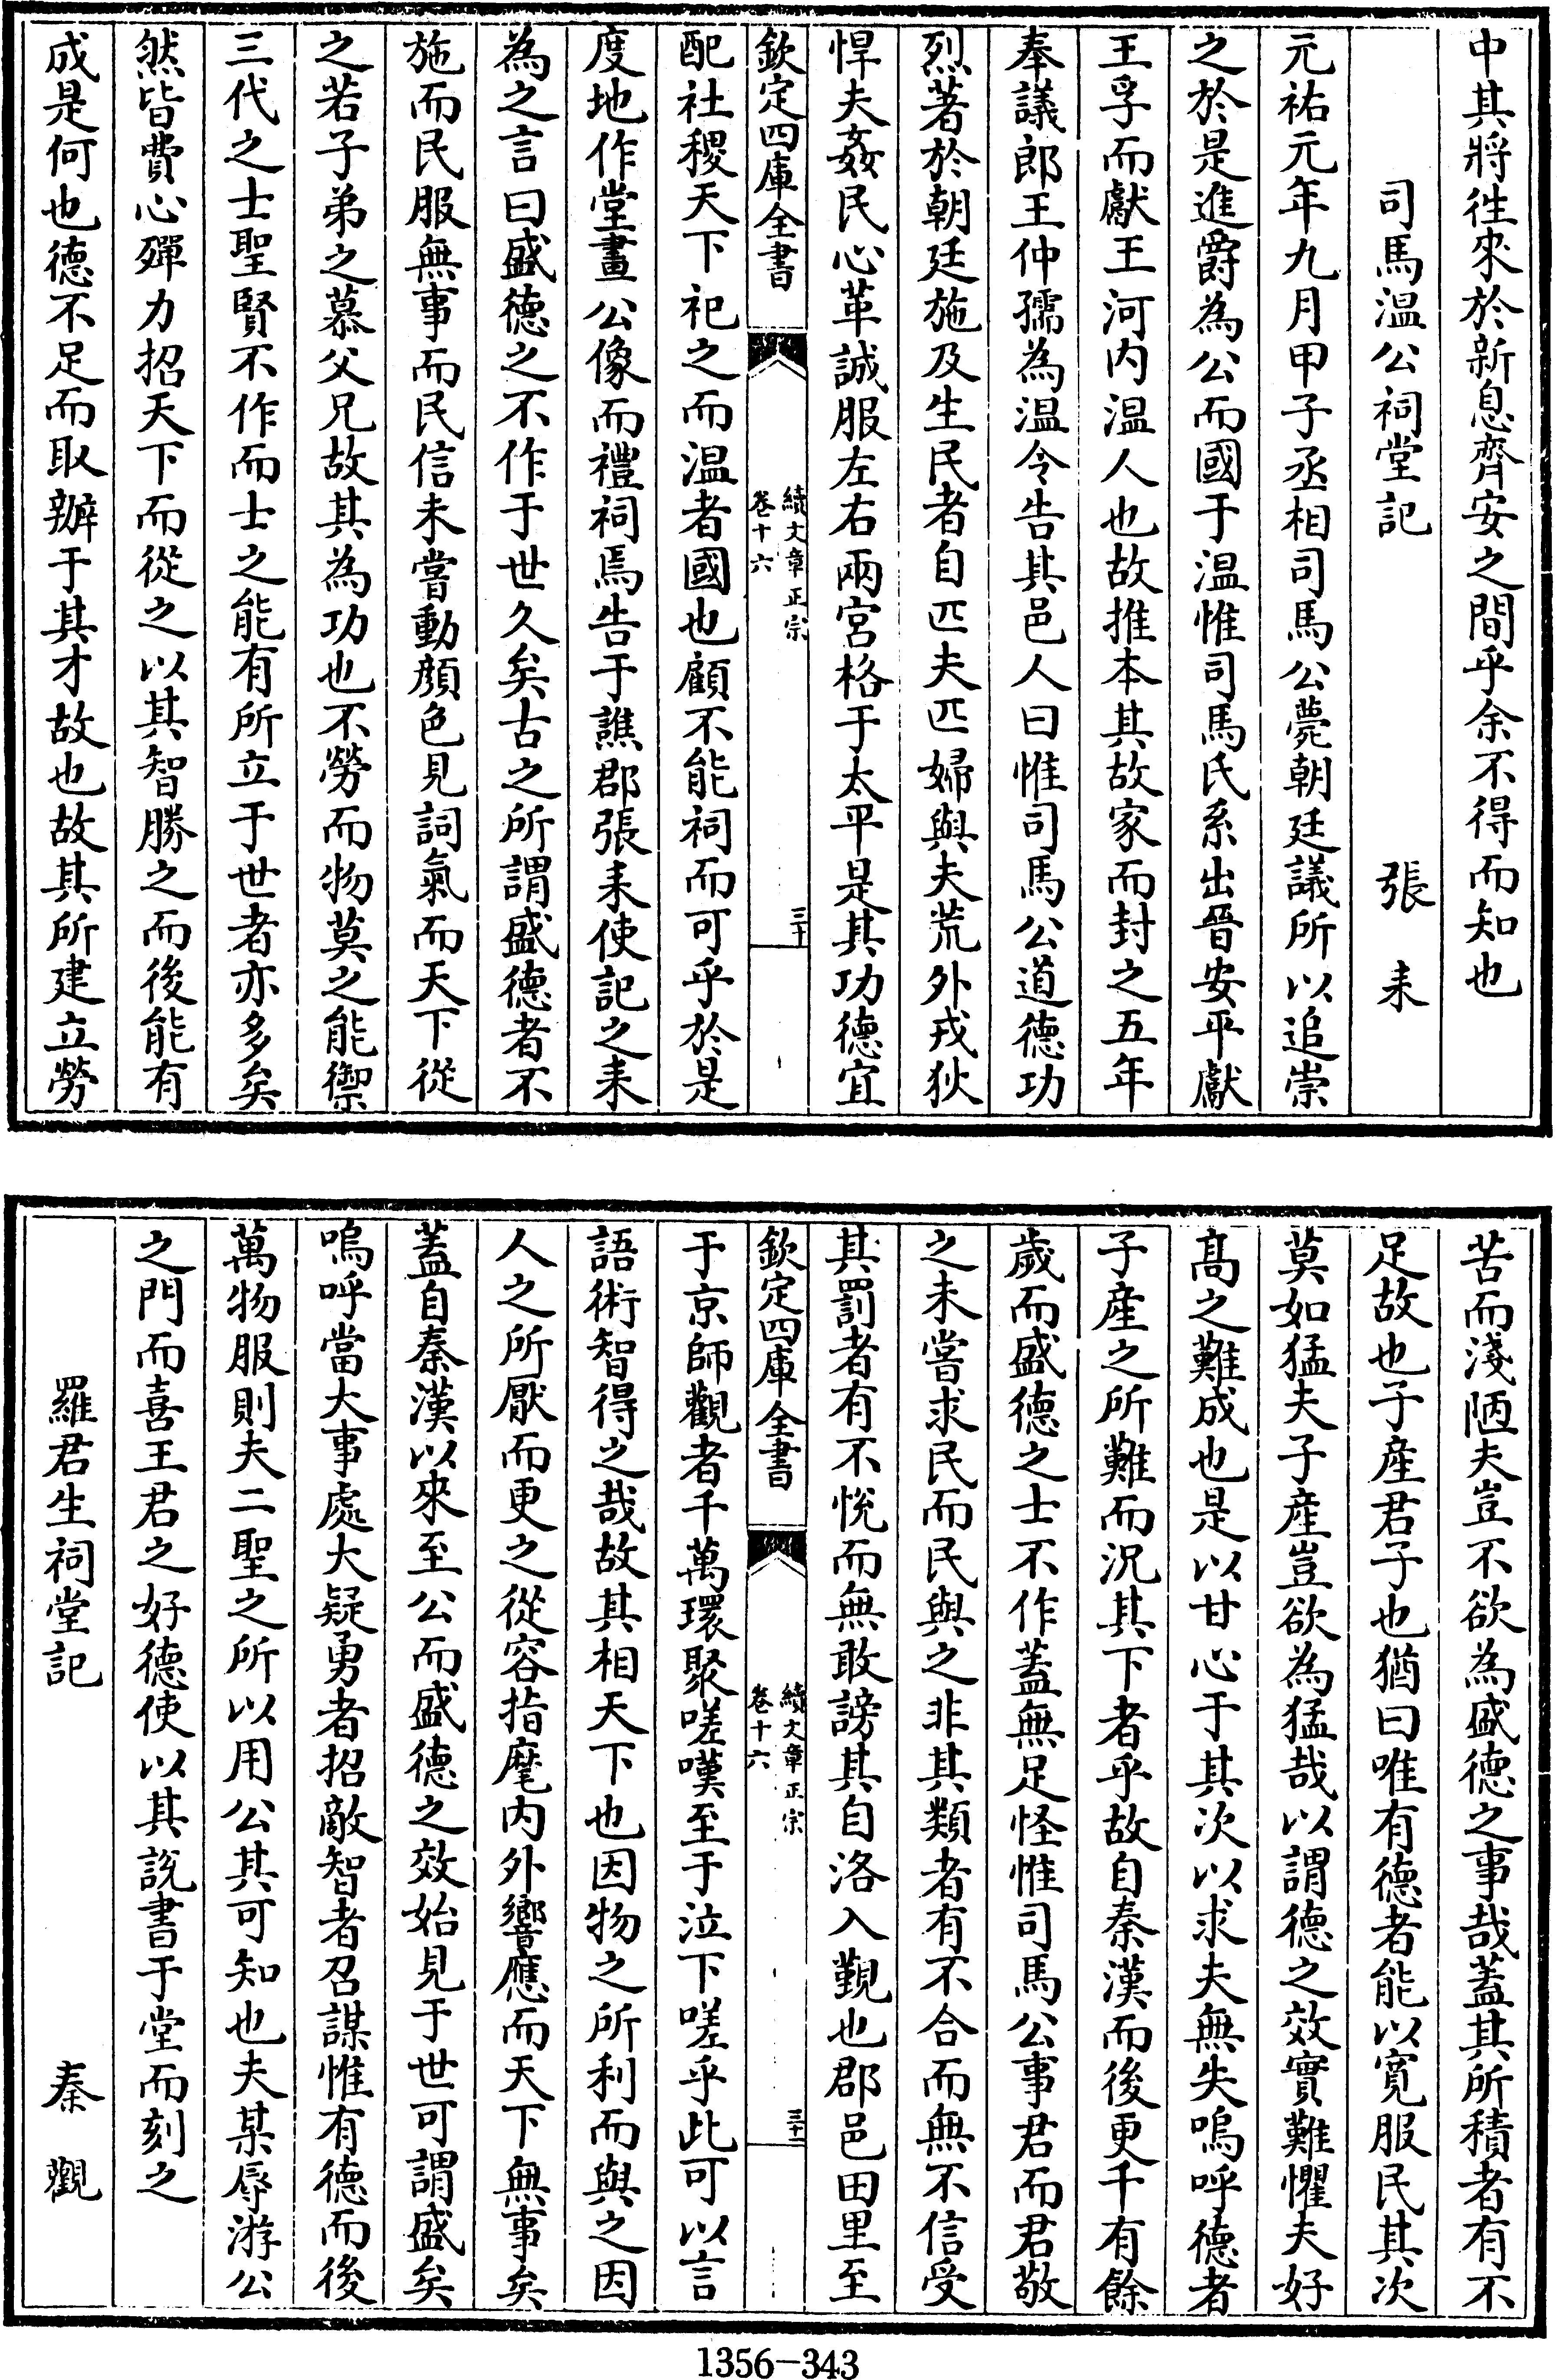 中其將徃來於新息齊安之間乎余不得而知也
司馬温公祠堂記 張耒
元祐元年九月甲子丞相司馬公薨朝廷議所以追崇
之於是進爵為公而國于温惟司馬氏系出晉安平獻
王孚而獻王河内温人也故推本其故家而封之五年
奉議郎王仲孺為温令告其邑人曰惟司馬公道德功
烈著於朝廷施及生民者自匹夫匹婦與夫荒外戎狄
悍夫姦民心革誠服左右兩宮格于太平是其功德宜
欽定四庫全書 續文章正宗 卷十六 三十
配社稷天下祀之而温者國也顧不能祠而可乎於是
度地作堂畫公像而禮祠焉告于譙郡張耒使記之耒
為之言曰盛德之不作于世久矣古之所謂盛德者不
施而民服無事而民信未嘗動顔色見詞氣而天下從
之若子弟之慕父兄故其為功也不勞而物莫之能禦
三代之士聖賢不作而士之能有所立于世者亦多矣
然皆費心殫力招天下而從之以其智勝之而後能有
成是何也德不足而取辦于其才故也故其所建立勞
苦而淺陋夫豈不欲為盛德之事哉蓋其所積者有不
足故也子産君子也猶曰唯有德者能以寬服民其次
莫如猛夫子産豈欲為猛哉以謂德之效實難懼夫好
髙之難成也是以甘心于其次以求夫無失嗚呼德者
子産之所難而況其下者乎故自秦漢而後更千有餘
歲而盛德之士不作蓋無足怪惟司馬公事君而君敬
之未嘗求民而民與之非其類者有不合而無不信受
其罰者有不悅而無敢謗其自洛入覲也郡邑田里至
欽定四庫全書 續文章正宗 卷十六 三十一
于京師觀者千萬環聚嗟嘆至于泣下嗟乎此可以言
語術智得之哉故其相天下也因物之所利而與之因
人之所厭而更之從容指麾内外響應而天下無事矣
蓋自秦漢以來至公而盛德之效始見于世可謂盛矣
嗚呼當大事處大疑勇者招敵智者召謀惟有德而後
萬物服則夫二聖之所以用公其可知也夫某辱游公
之門而喜王君之好德使以其説書于堂而刻之
羅君生祠堂記 秦觀
1356-343